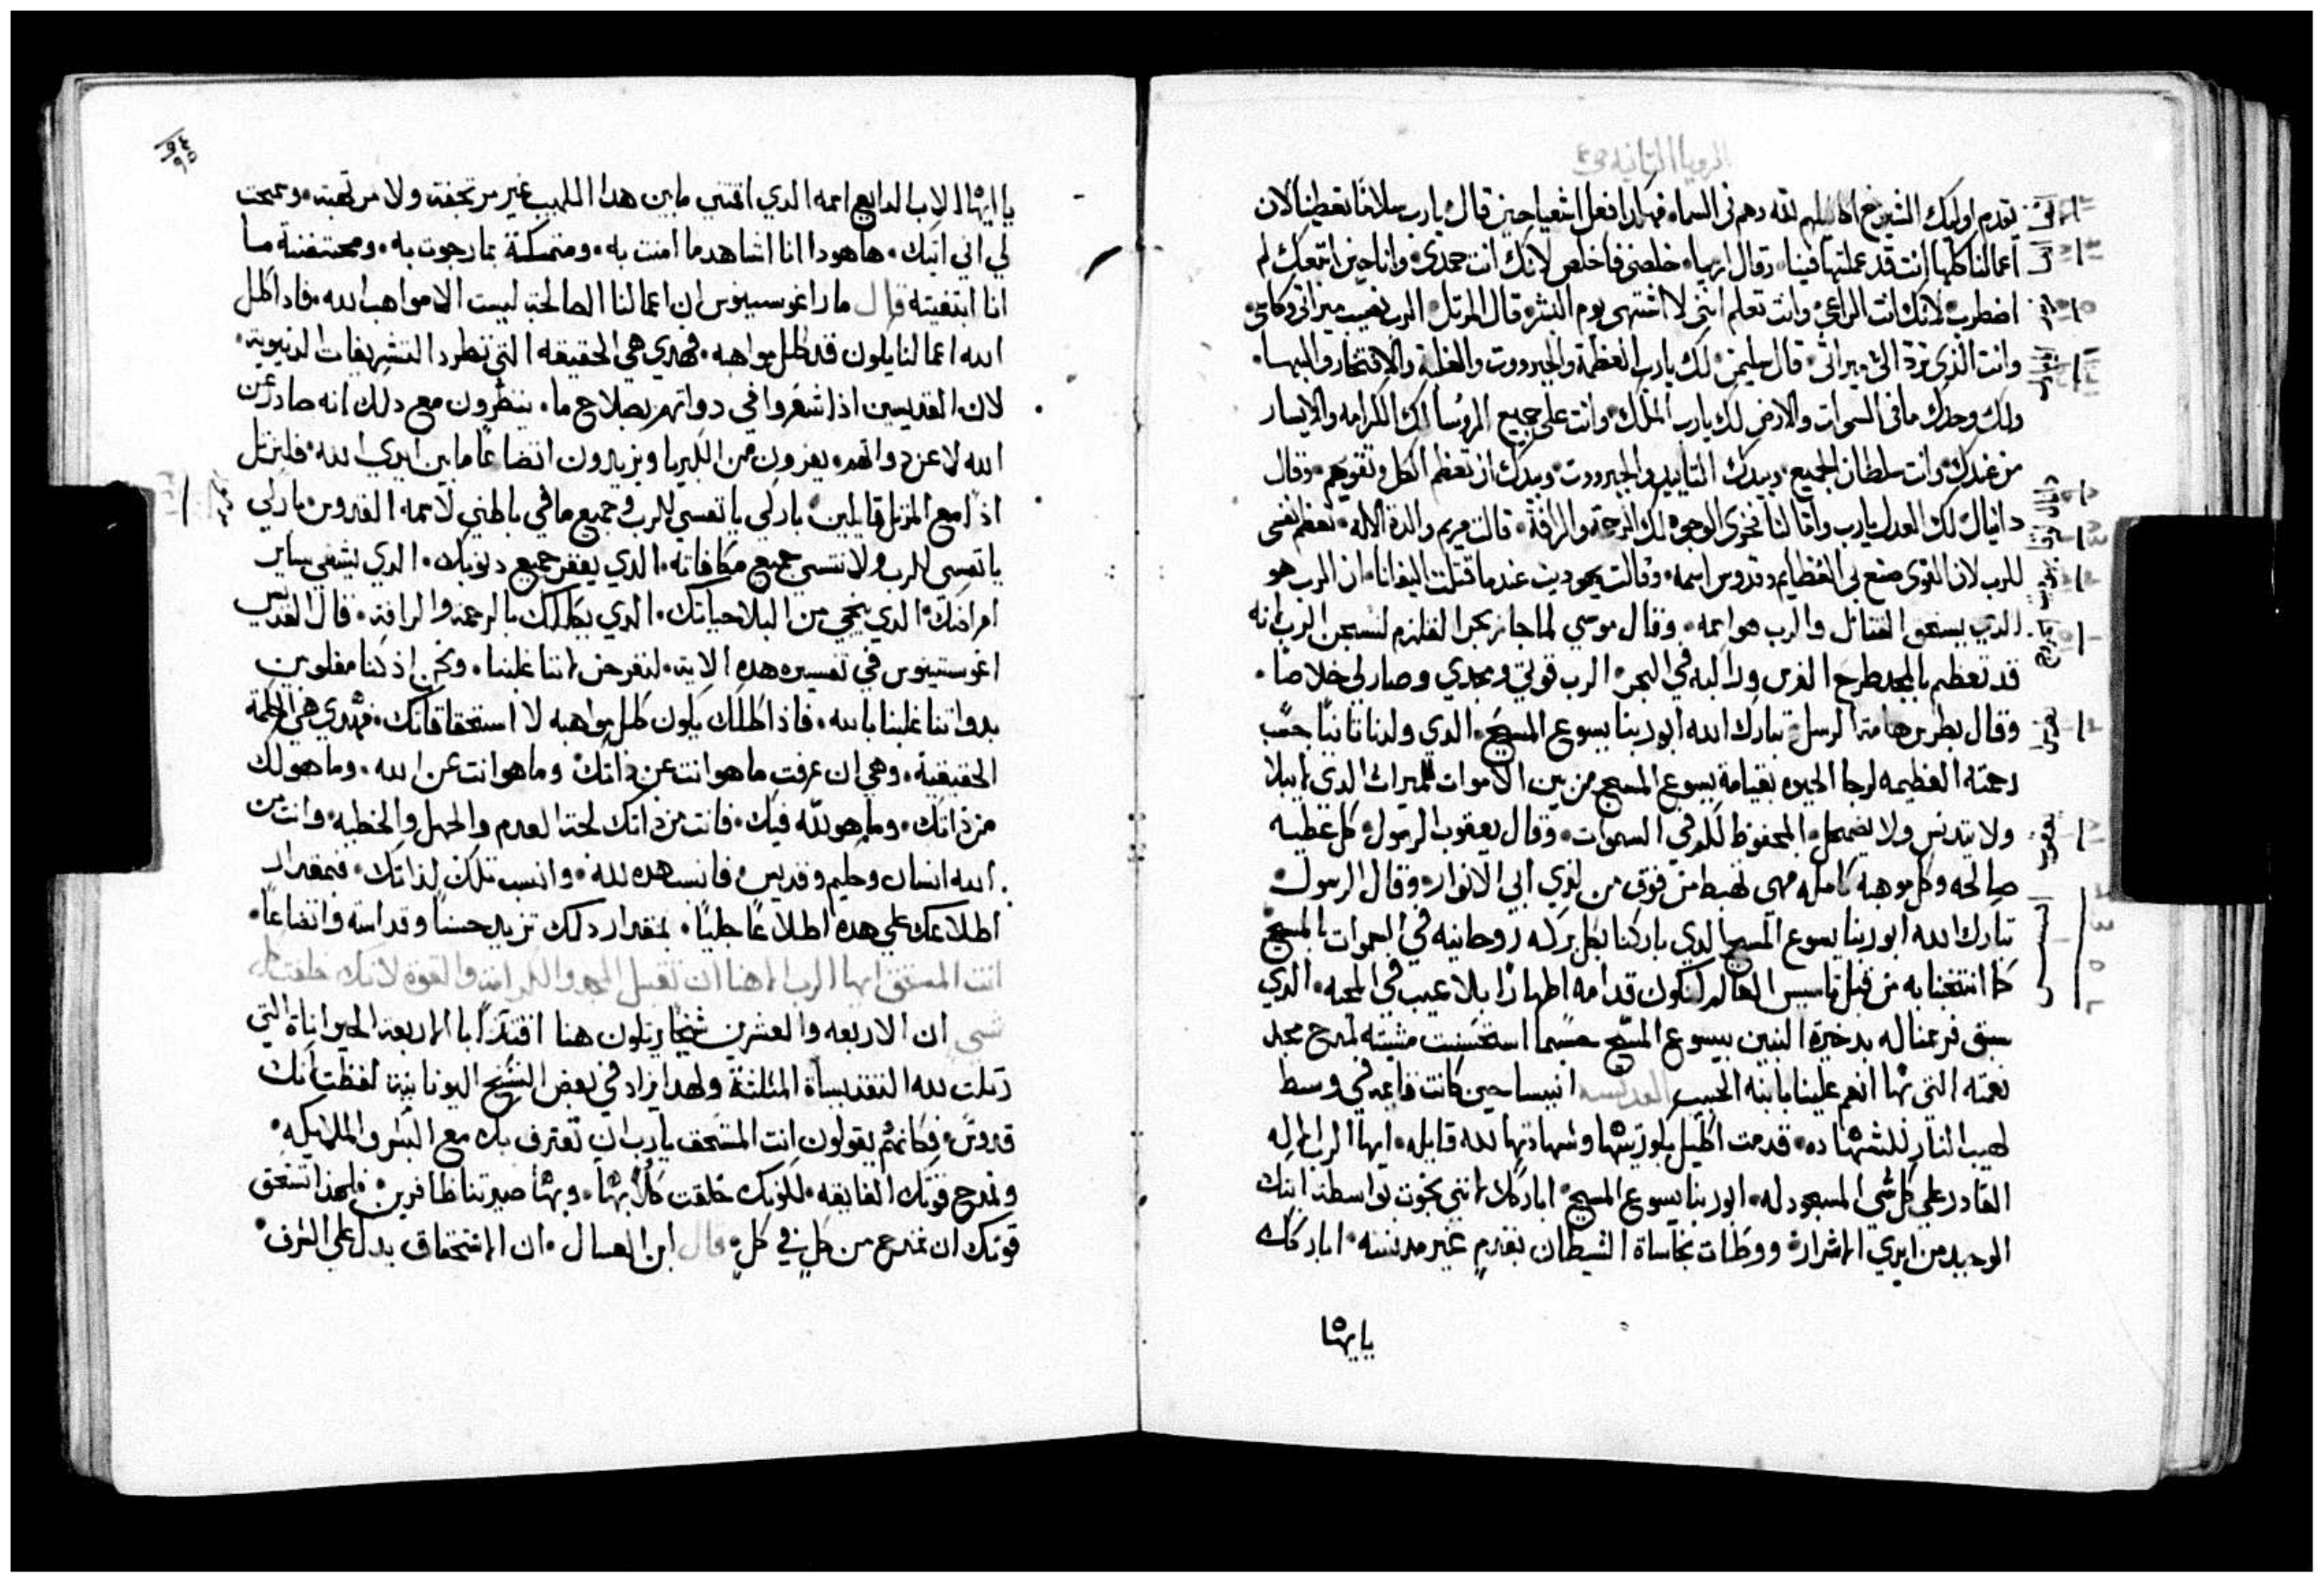 الرويا التانيه
تقدم اوليك الشيوخ اكاليلهم لله وهم في السماء فهكدا فعل اشعيا حين قال يارب سلامًا تعطينا لان
اعمالنا كلها انت قد عملتها فينا وقال ارميا خلصني فاخلص لانك انت حمدي وانا حين اتبعك لم
اضطرب لانك انت الراعي وانت تعلم انني لا اشتهي يوم البشر قال المرتل الرب نصيب ميراثي وكاسي
وانت الذي ترد الي ميراثي قال سليمن لك يارب العظمة والجبرووت والغلبة والافتخار والبها
ولك وحدك ما في السموات والارض لك يارب الملك وانت على جميع الروسا لك الكرامه والايسار
من عندك وانت سلطان الجميع وبيدك التاييد والجبرووت وبيدك ان تعظم الكل وتقويهم وقال
دانيال لك العدل يارب وامّا لنا نخزى الوجوه لك الرحمة والرافة قالت مريم والدة الاله تعظم نفسي
للرب لان القوي صنع بي العظايم وقدوس اسمه وقالت يهوديت عندما قتلت اليفانا ان الرب هو
الذي يسحق القتال والرب هو اسمه وقال موسي لما جاز بحر القلزم لنسبحن الرب انه
قد تعظم بالمجد طرح الفرس وراكبه في البحر الرب قوتي ومجدي وصار لي خلاصًا
وقال بطرس هامة الرسل تبارك الله ابو ربنا يسوع المسيح الدي ولدنا تانيًا حسب
رحمته العظيمه لرجا الحيوه بقيامة يسوع المسيح من بين الاموات للميراث الدي لا يبلا
ولا يتدنس ولا يضمحل المحفوظ لكم في السموات وقال يعقوب الرسول كل عطيه
صالحه وكل موهبه كامله فهي تهبط من فوق من لدي ابي الانوار وقال الرسول
تبارك الله ابو ربنا يسوع المسيح الدي باركنا بكل بركه روحانيه في السموات بالمسيح
كما انتخبنا به من قبل تاسيس العالم لنكون قدامه اطهارًا بلا عيب في المحبه الدي
سبق فرسمنا له بدخيرة البنين بيسوع المسيح حسبما استحسنت مشيته لمدح مجد
نعمته التي بها انعم علينا بابنه الحبيب القديسه انييسا حين كانت قاعده في وسط
لهيب النار للشهاده قدمت اكليل بتوليتها وشهادتها لله قايله ايها الرب الاله
القادر على كل شي المسجود له ابو ربنا يسوع المسيح اباركك لانني نجوت بواسطة ابنك
الوحيد من ايدي الاشرار ووطات نجاساة الشيطان بقدم غير مدنسه اباركك
يا ايها
يا ايها الاب الدايع اسمه الدي اقمتني ما بين هدا اللهيب غير مرتجفة ولا مرتعبة وسمحت
لي اني اتيك ها هودا انا اشاهد ما امنت به ومتمسكنة بما رجوت به ومحتضنة ما
انا ابتغيته قال مار اغوسسينوس ان اعمالنا الصالحة ليست الا مواهب الله فاد اكلل
الله اعمالنا يكون قد كلل مواهبه فهدي هي الحقيقه التي تطرد التشريفات الدنيوية
لان القديسين اذا شعروا في دواتهم بصلاح ما ينظرون مع دلك انه صادر عن
الله لا عن دواتهم يفرون من الكبريا ويزيدون اتضاعًا ما بين ايدي الله فلنرتل
اذًا مع المرتل قايلين باركي يا نفسي للرب وجميع ما في باطني لاسمه القدوس باركي
يا نفسي للرب ولا تنسي جميع مكافاته الدي يغفر جميع دنوبك الدي يشفي ساير
امراضك الدي ينجي من البلا حياتك الدي يكللك بالرحمة والرافة قال القديس
اغوستينوس في تفسيره هده الاية لنفرض اننا غلبنا ونحن اذ كنا مغلوبين
بدواتنا غلبنا بالله فاذا كللك يكون كلل مواهبه لا استحقاقاتك فهدي هي الحكمة
الحقيقية وهي ان عرفت ما هو انت عن ذاتك وما هو انت عن الله وما هو لك
من ذاتك وما هو لله فيك فانت من ذاتك لحقة العدم والجهل والخطيه وانت من
الله انسان وحكيم وقديس فانسب هده لله وانسب تلك لذاتك فبمقدار
اطلاعك علي هده اطلاعًا جليًا بمقدار دلك تزيد حسنًا وقداسة واتضاعًا
انت المستحق ايها الرب الاهنا ان تقبل المجد والكرامة والقوة لانك خلقت كل
شي ان الاربعه والعشرين شيخًا يرتلون هنا اقتداًا بالاربعة الحيواناة التي
رتلت لله التقديساة المثلثة ولهدا يزاد في بعض النسخ اليونانية لفظة انك
قدوس فكانهم يقولون انت المستحق يارب ان تعترف بك مع البشر والملايكه
ونمدح قوتك الفايقه لكونك خلقت كلًا بها وبها صيرتنا ظافرين فلهدا تستحق
قوتك ان تمدح من كلٍ في كلٍ قال ابن العسال ان الاستحقاق يدل علي الشرف